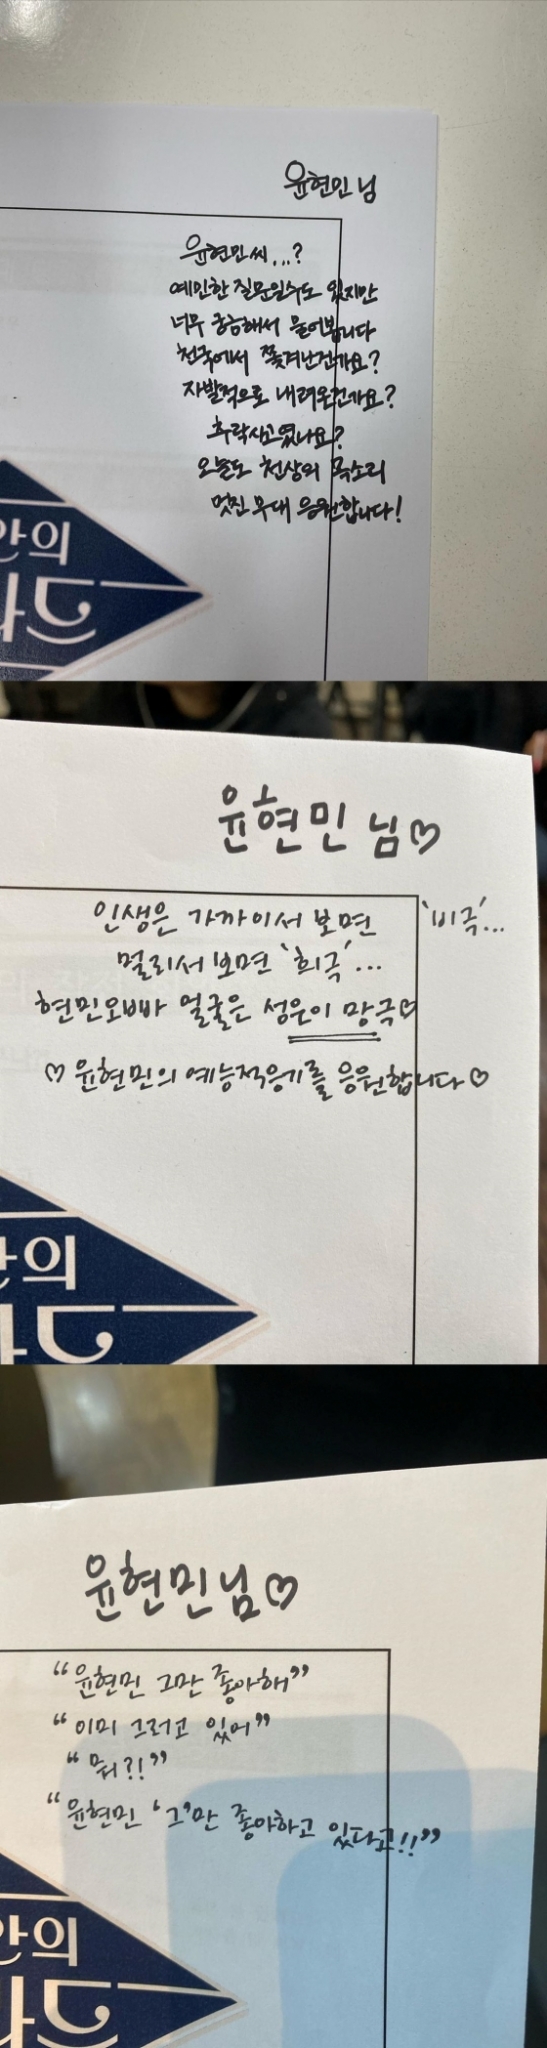 윤현민 님
윤현민씨...?
예민한 질문일수도 있지만
너무 궁금해서 물어봅니다
천국에서 쫓겨난건가요?
자발적으로 내려온건가요?
추락사고였나요?
오늘도 천상의 목소리
멋진 무대 응원합니다!
안의
윤현민 님♡
인생은 가까이서 보면 '비극'...
멀리서 보면 '희극'...
현민오빠 얼굴은 성은이 망극♡
♡ 윤현민의 예능적응기를 응원합니다♡
의
윤현민님♡
“윤현민 그만 좋아해”
“이미 그러고 있어”
“뭐?!”
“윤현민 ‘그’만 좋아하고 있다고!!”
안의